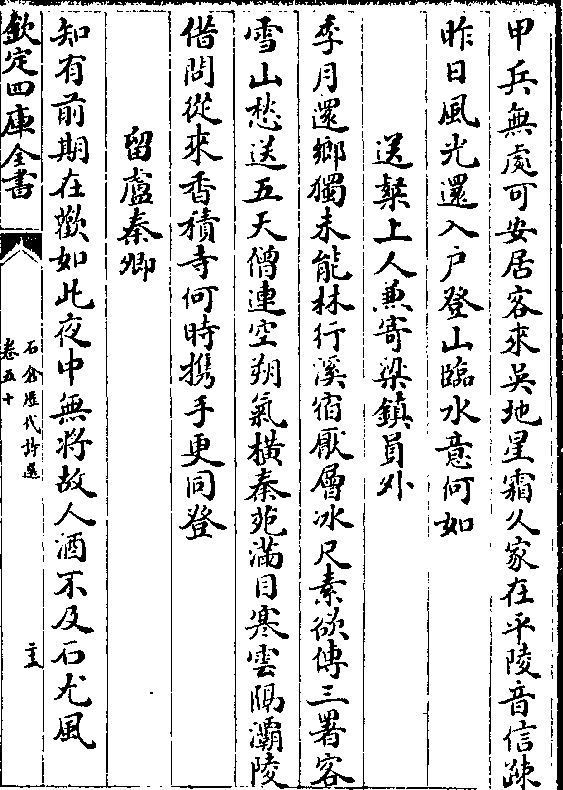 甲兵無處可安居客來吳地星霜久家在平陵音信踈
昨日風光還入戸登山臨水意何如
送粲上人兼寄梁鎮員外
季月還鄉獨未能林行溪宿厭層冰尺素欲傳三署客
雪山愁送五天僧連空朔氣橫秦苑滿目寒雲隔灞陵
借問從來香積寺何時携手更同登
留盧秦卿
知有前期在歡如此夜中無將故人酒不及石尤風
欽定四庫全書
石倉歷代詩選
卷五十